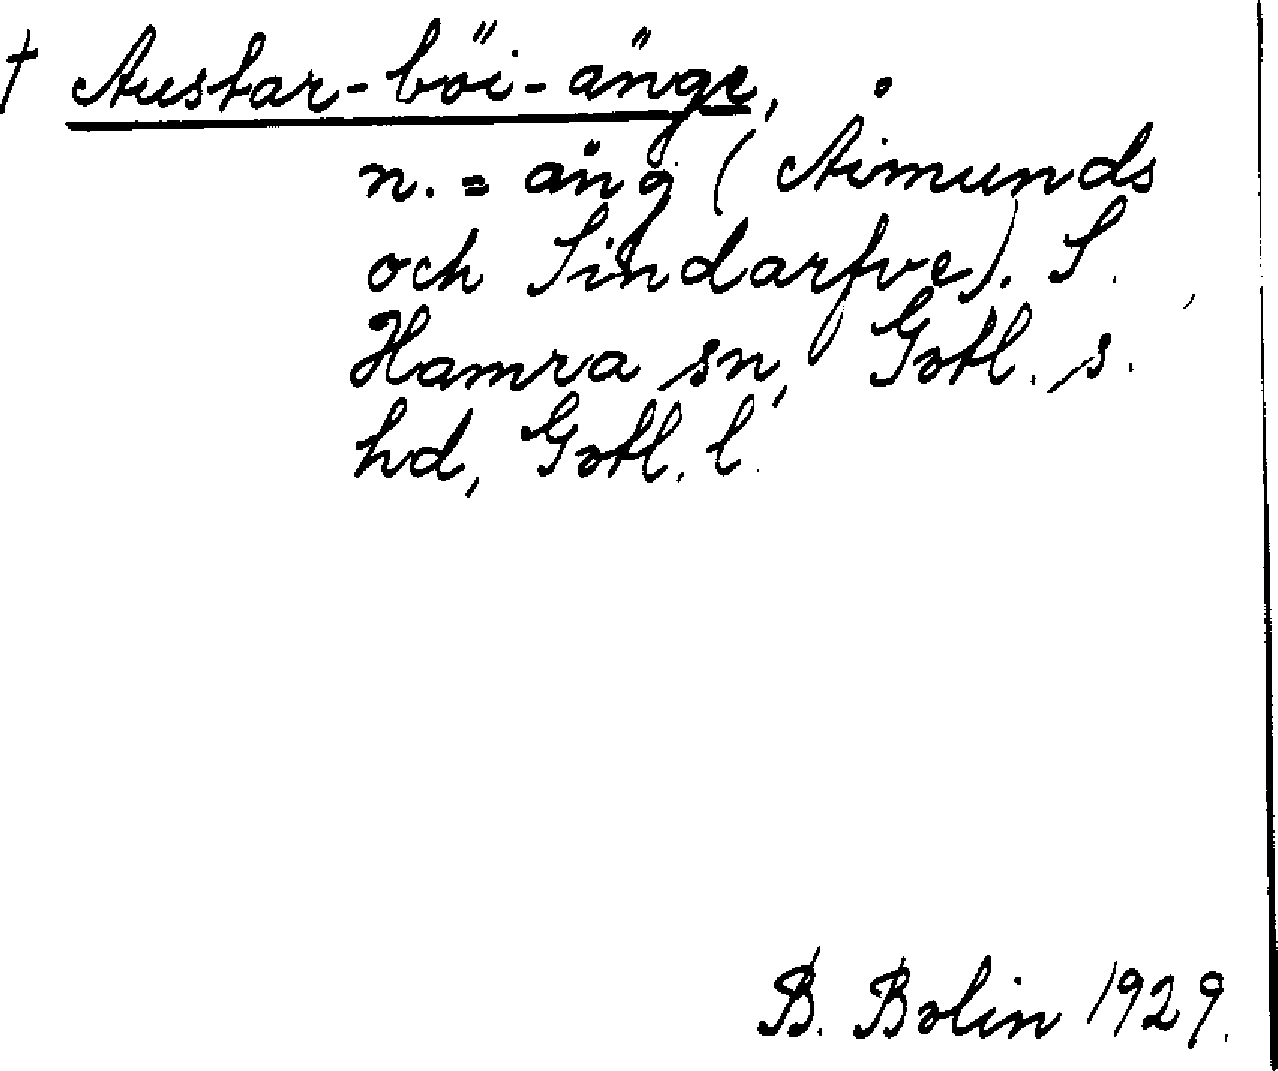 † Austar-böi-änge,
n. = äng (Aimunds
och Sindarfve). S.
Hamra sn, Gotl. s.
hd, Gotl. l.
B. Bolin 1929.